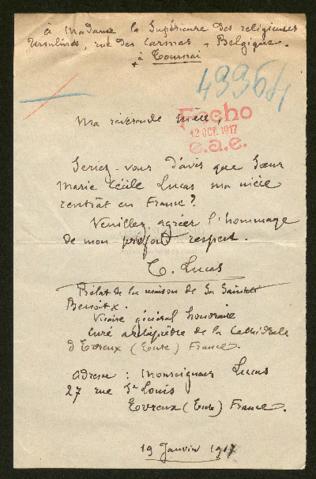 à Madame la Supérieure des religieuses
Ursulines, rue des Carmes, Belgique.
à Tournai
49964
Fecho
12 OCT. 1917
c.a.e.
Ma révérende mère,
Seriez-vous d'avis que Sœur
Marie Cécile Lucas ma nièce
rentrât en France ?
Veuillez agréer l'hommage
de mon profond respect.
C. Lucas
Prélat de la maison de Sa Sainteté
Benoit X.
Vicaire général honoraire
curé archiprêtre de la Cathédrale
d'Evreux (Eure) France.
adresse : Monseigneur Lucas
27 rue St Louis
Evreux (Eure) France.
19 Janvier 1917